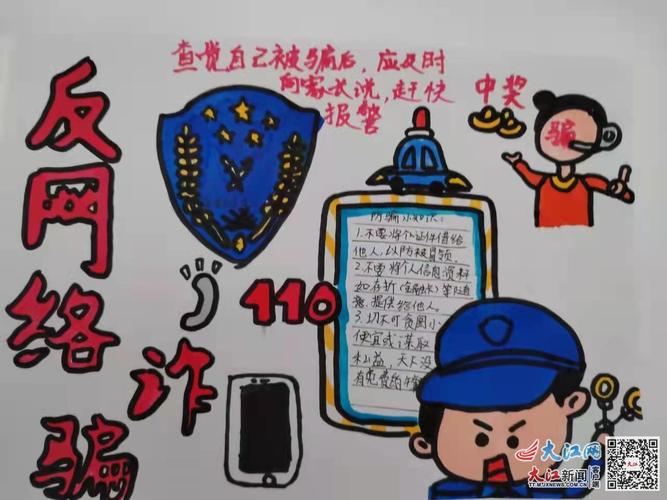 查觉自己被骗后，应及时
向家长说，赶快
报警
中奖
骗
反网络
诈骗
110
防骗小知识：
1.不要将个人证件借给
他人，以防被冒领
2.不要将个人信息资料
如存折(金融卡)等随
意提供给他人。
3.切不可贪图小
便宜或谋取
私益，天下没
有免费的午餐
大江网
大江新闻客户端
TT.M.JXNEWS.COM.CN